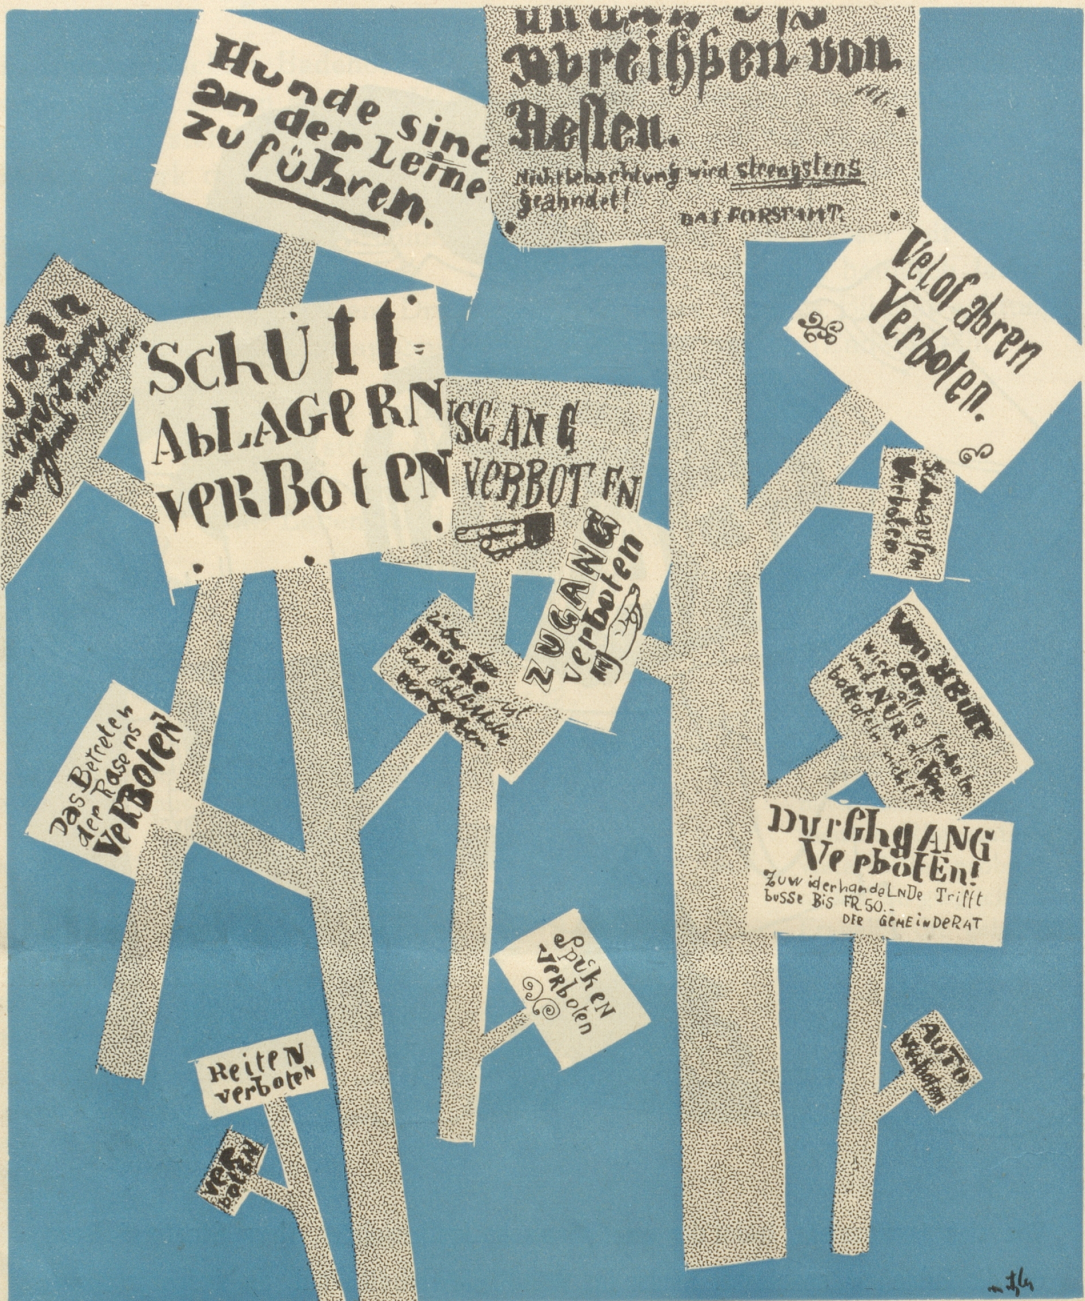 Hunde sind
an der Leine
zu führen.
Abreihßen von
Aesten.
Nichtbehachtung wird strengstens
geahndet!
DAS FORSTAMT.
Velofahren
Verboten.
SchUtt=
AbLAGeRN
verBoteN
USGANG
VERBOTEN
ZUGANG
verboten
Schnaufen
Verboten
über die
BRÜCKE ist
verboten
VON HEUTE
AN
wird alles
und NUR die
Das Betreten
der Rasens
VerBoteN
DurChgANG
VerbotEn!
ZuwiderhandeLNDe Trifft
busse Bis FR.50.-
DER GEMEiNDeRAT
Spuken
verboten
AUTO
verboten
ReiteN
verboteN
VER
boten